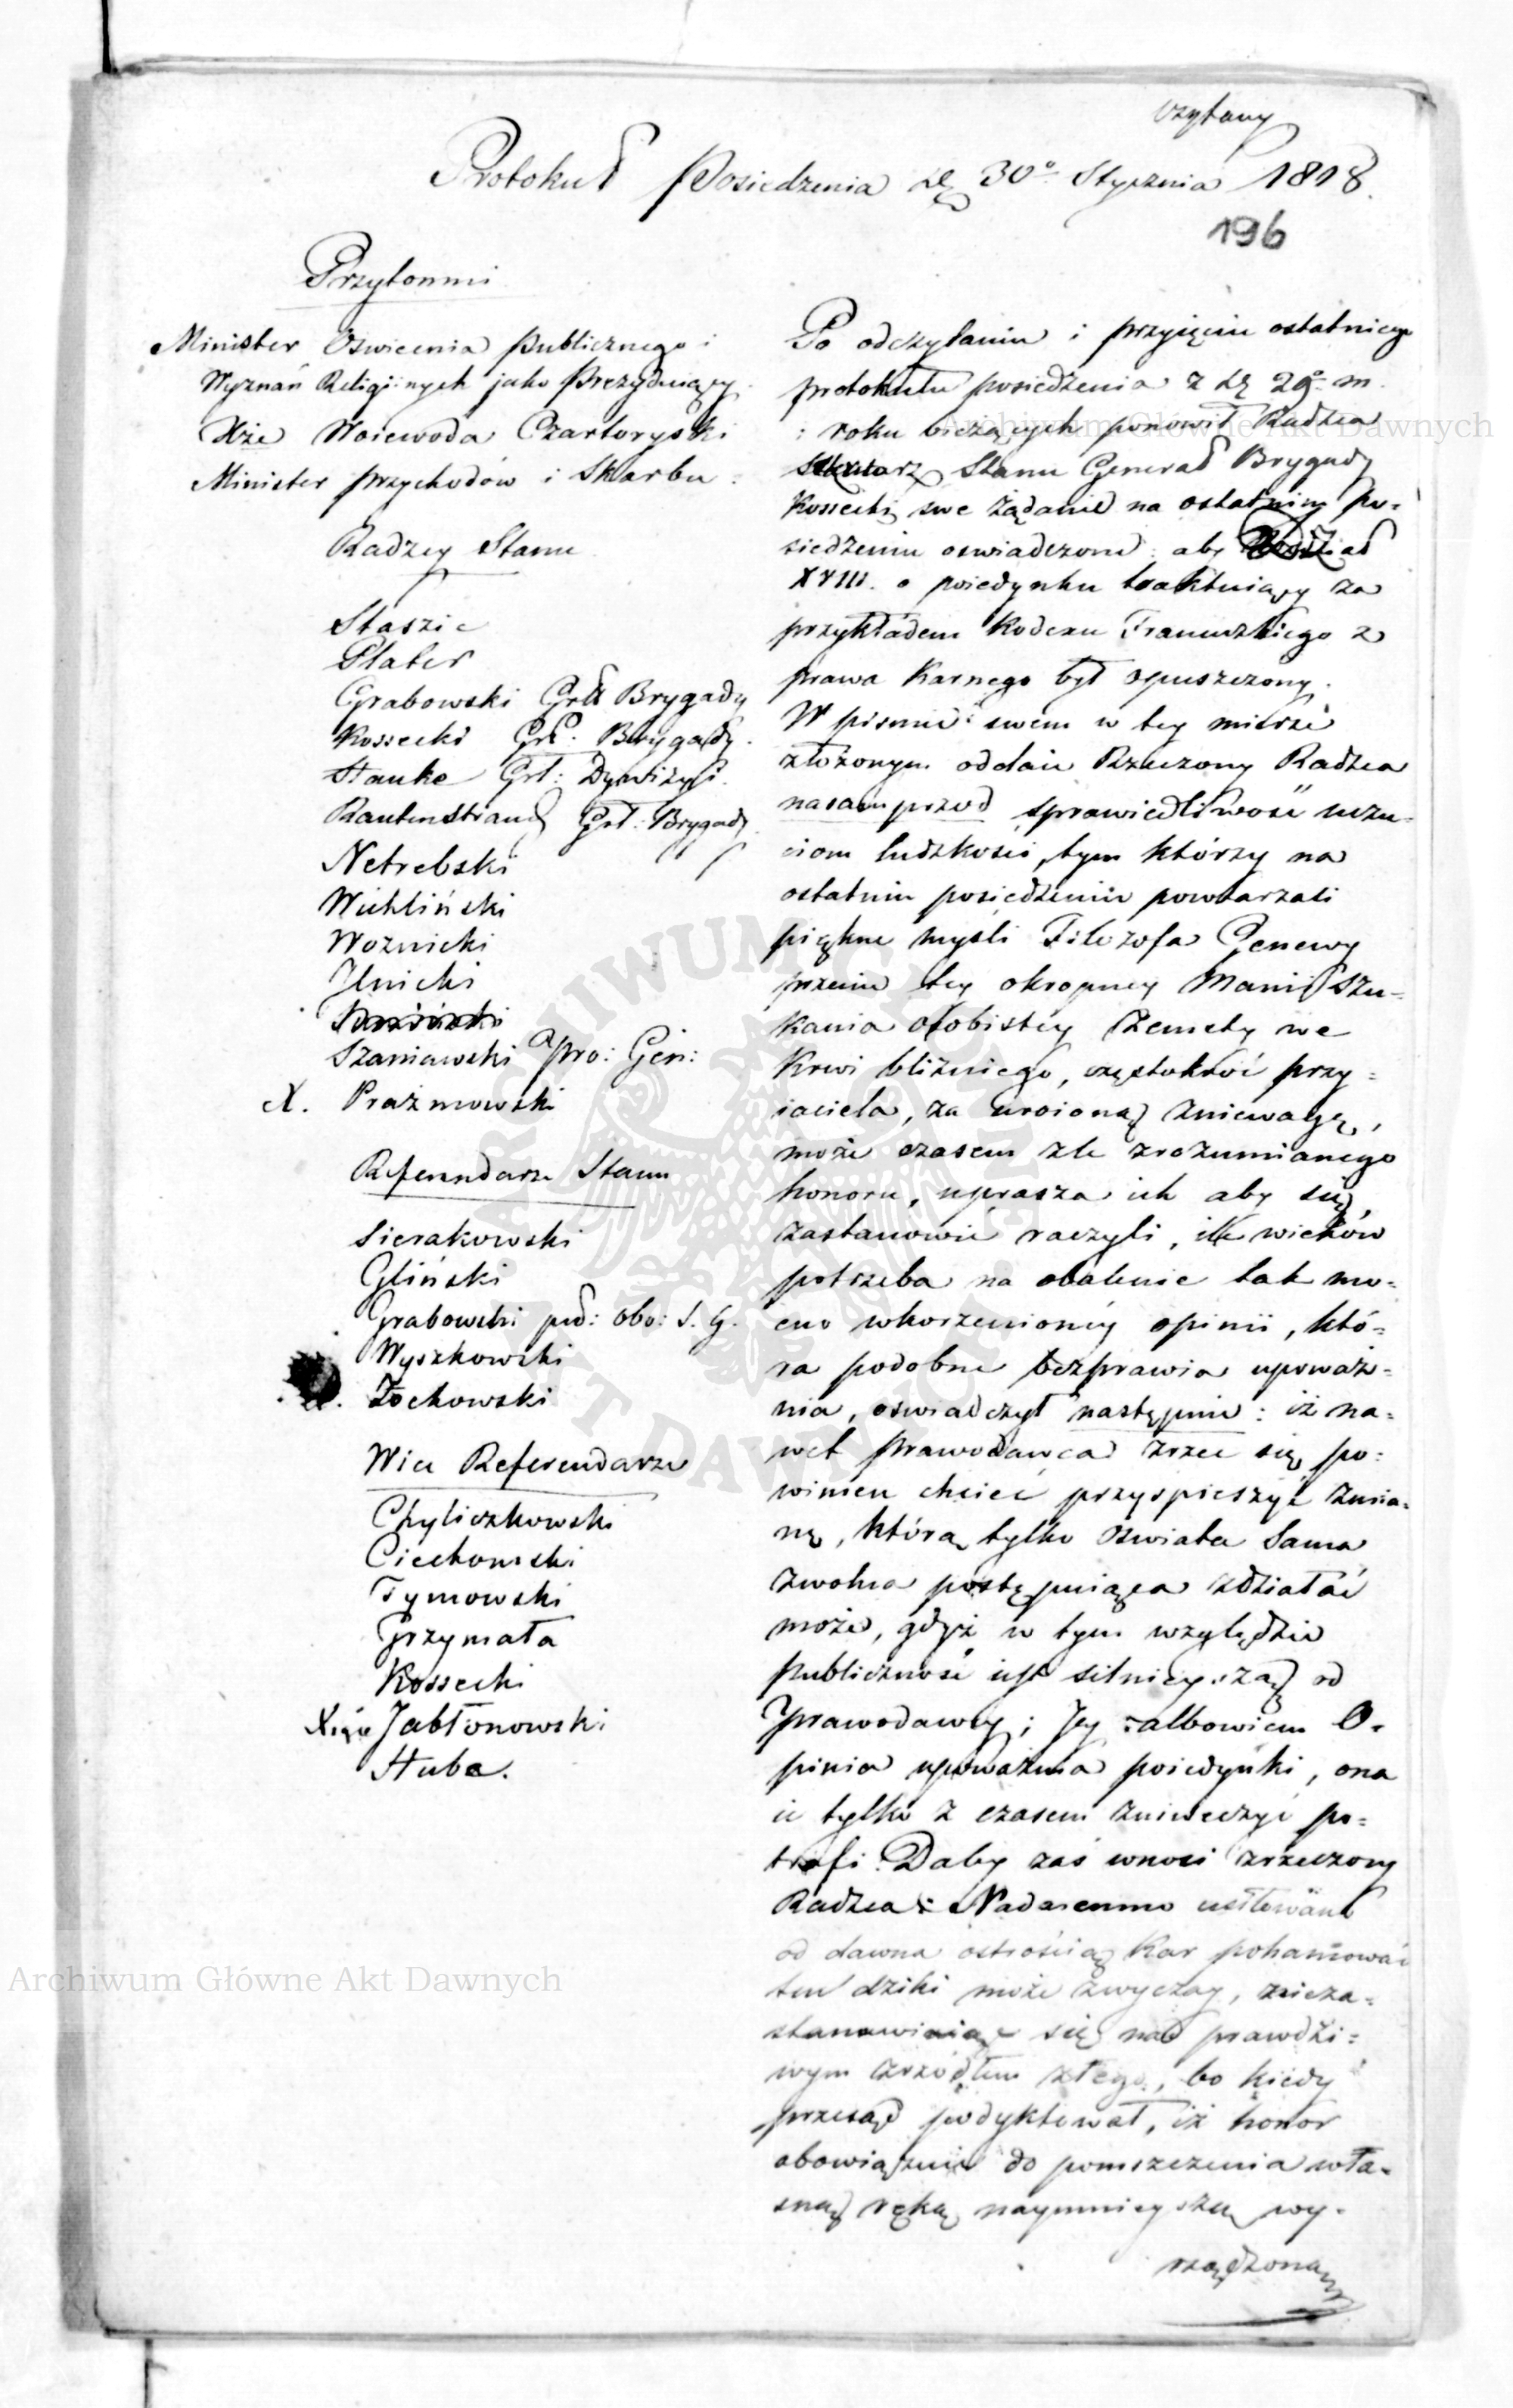 czytany
Protokuł Posiedzenia dę 30° Stycznia 1818.
196
Przytomni
Minister Oswiecenia Publicznego i
Wyznań Religijnych jako Prezyduiący.
Xże Woiewoda Czartoryski
Minister Przychodów i Skarbu.
Radzcy Stanu
Staszic
Plater
Grabowski Grł Brygady
Kossecki Grł. Brygady.
Hauke Grł: Dywizyi.
Rautenstrauch Grł: Brygady
Netrebski
Wichliński
Woznicki
Ilnicki
Szaniawski Pro: Gen:
X. Prażmowski
Referendarze Stanu
Sierakowski
Gliński
Grabowski pod: obo: S. G.
Wyszkowski
Żochowski
Wice Referendarze
Chyliczkowski
Ciechomski
Tymowski
Grzymała
Kossecki
Xiąże Jabłonowski
Hube.
Po odczytaniu i przyięciu ostatniego
protokułu posiedzenia z dę 29° m.
i roku bieżących ponowił Radzca
Sekretarz Stanu Generał Brygady
Kossecki swe żądanie na ostatnim po=
siedzeniu oswiadczone: aby Rozdział
XVIII. o poiedynku traktuiący za
przykładem Kodexu Francuzkiego z
prawa Karnego był opuszczony.
W pismie swem w tey mierze
złożonym oddaie Rzeczony Radzca
nasamprzod sprawiedliwość uczu=
ciom ludzkości, tym którzy na
ostatnim posiedzeniu powtarzali
piękne mysli Filozofa Genewy
przeciw tey okropney Manii szu=
kania osobistey zemsty we
Krwi bliźniego, częstokroć przy=
iaciela, za uroioną zniewagę,
może czasem zle zrozumianego
honoru, uprasza ich aby się
zastanowić raczyli, ile wieków
potrzeba na obalenie tak mo=
cno wkorzenioney opinii, któ=
ra podobne bezprawia upoważ=
nia, oswiadczył następnie: iż na=
wet Prawodawca zrzec się po=
winien chcieć przyspieszyć zmia=
nę, którą tylko oswiata sama
zwolna postępuiąca zdziałać
może, gdyż w tym względzie
Publiczność iest silnieyszą od
Prawodawcy; Jey albowiem O=
pinia upoważnia poiedynki, ona
ie tylko z czasem zniweczyć po=
trafi. Daley zaś wnosi rzeczony
Radzca: Nadaremno usiłowano
od dawna ostrością Kar pohamować
ten dziki może zwyczay, nieza=
stanawiaiąc się nad prawdzi=
wym zrzódłem złego, bo kiedy
przesąd podyktował, iż honor
obowiązuie do pomszczenia wła=
sną ręką naymnieyszą wy=
rządzoną
Archiwum Główne Akt Dawnych
Archiwum Główne Akt Dawnych
ARCHIWUM GŁÓWNE AKT DAWNYCH